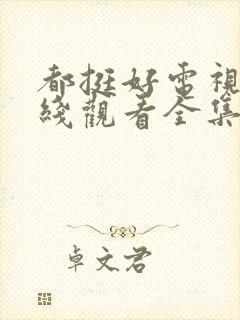 都挺好電視
綫觀看全集
卓文君